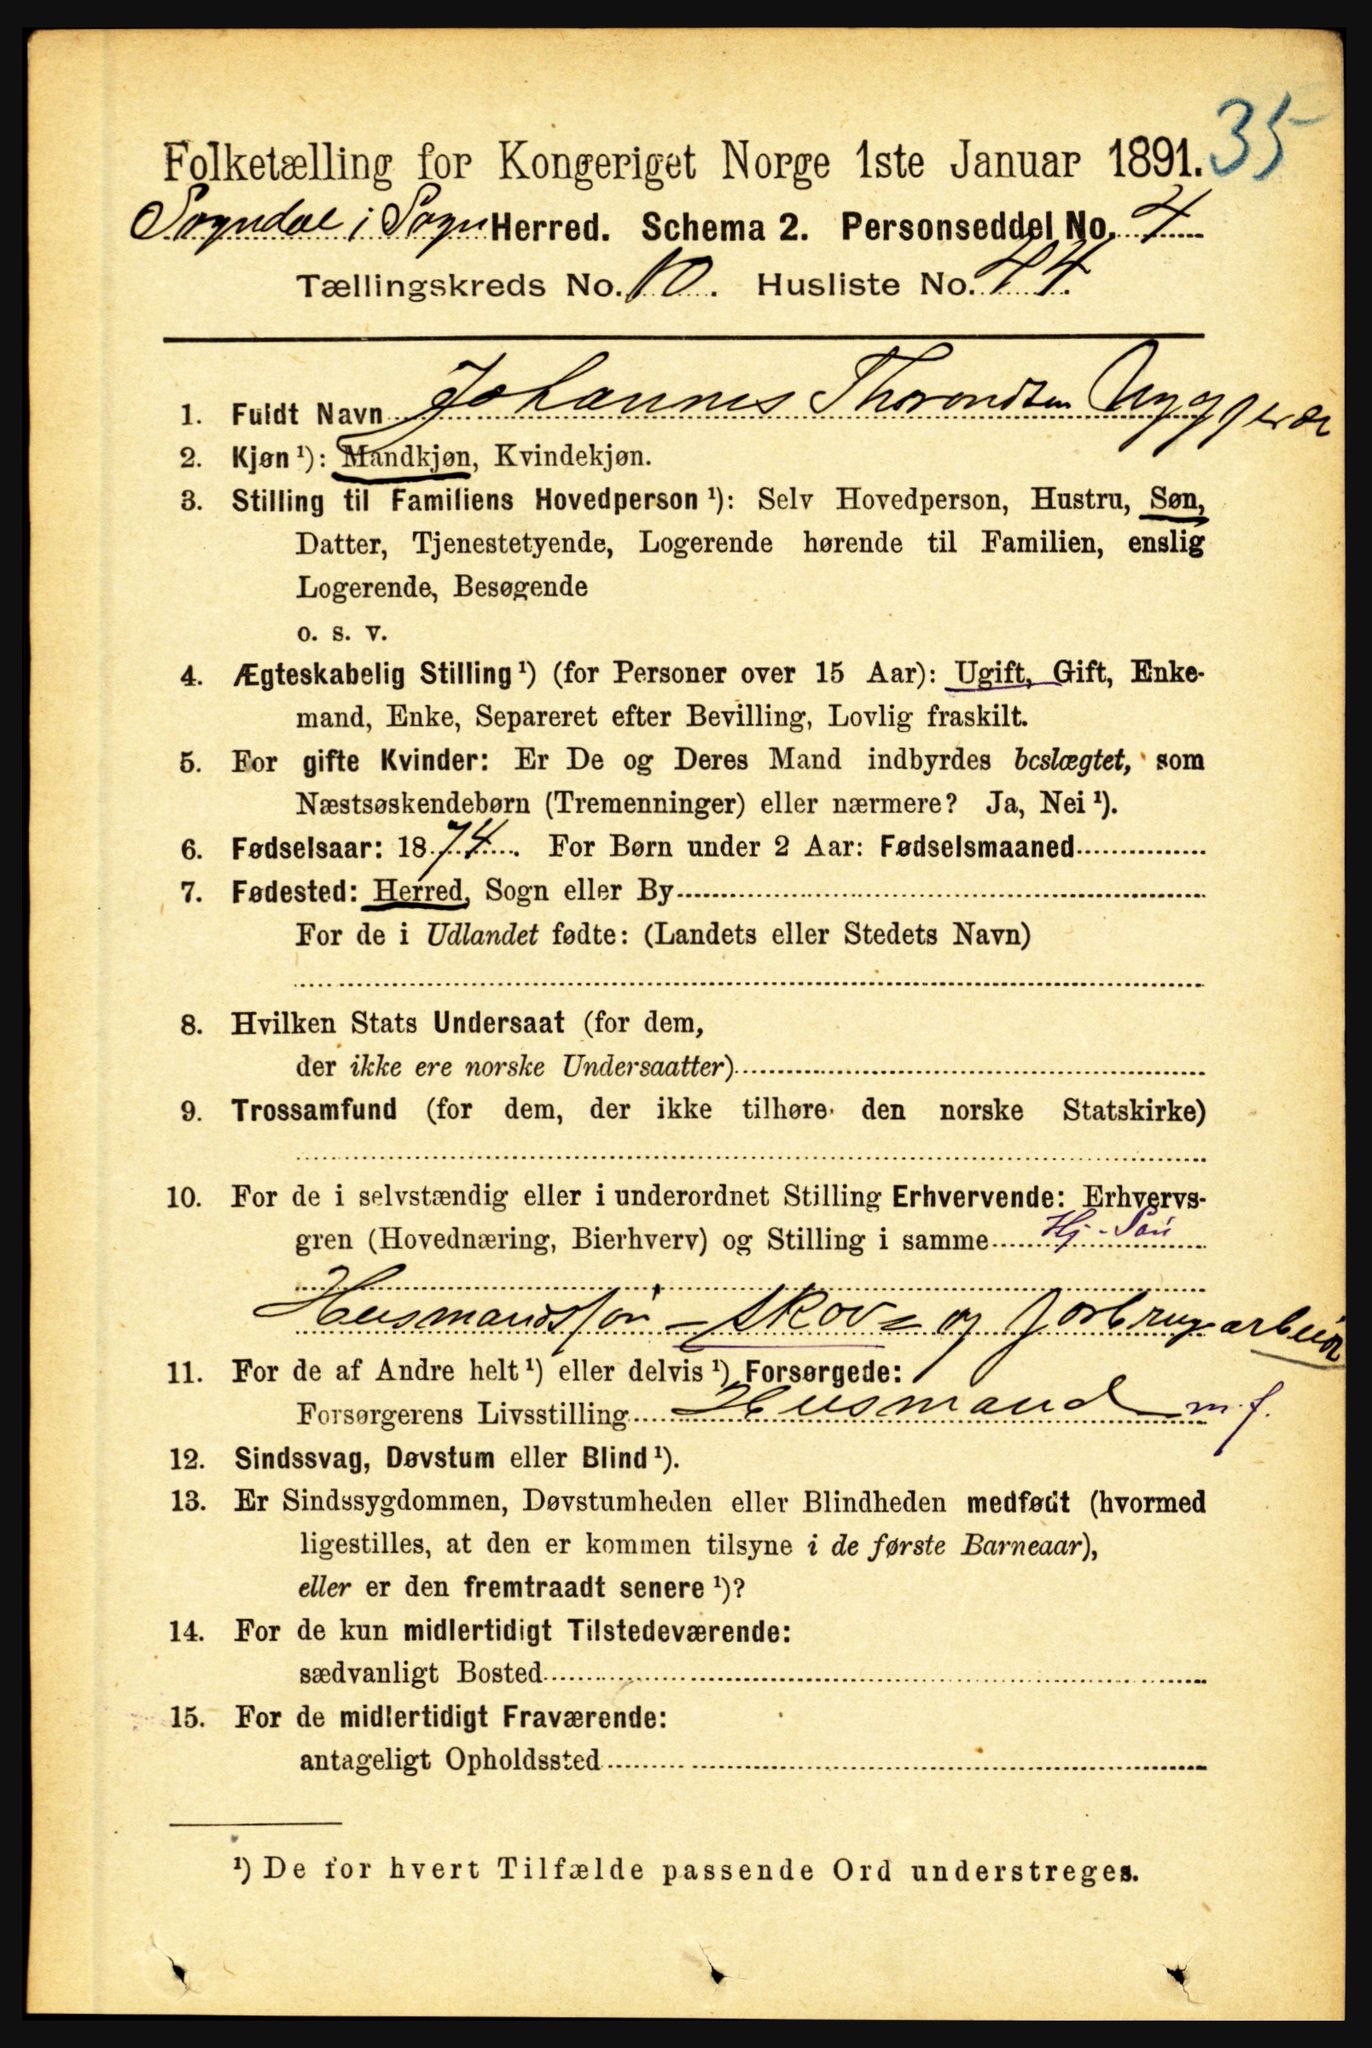 35
Folketælling for Kongeriget Norge 1ste Januar 1891.
Sogndal i Sogn Herred. Schema 2. Personseddel No. 4
Tællingskreds No. 10. Husliste No. 44.
1. Fuldt Navn Johannes Thorondsen
2. Kjøn ¹): Mandkjøn, Kvindekjøn.
3. Stilling til Familiens Hovedperson ¹): Selv Hovedperson, Hustru, Søn,
Datter, Tjenestetyende, Logerende hørende til Familien, enslig
Logerende, Besøgende
o. s. v.
4. Ægteskabelig Stilling ¹) (for Personer over 15 Aar): Ugift, Gift, Enke-
mand, Enke, Separeret efter Bevilling, Lovlig fraskilt.
5. For gifte Kvinder: Er De og Deres Mand indbyrdes beslægtet, som
Næstsøskendebørn (Tremenninger) eller nærmere? Ja, Nei ¹).
6. Fødselsaar: 1874. For Børn under 2 Aar: Fødselsmaaned
7. Fødested: Herred, Sogn eller By
For de i Udlandet fødte: (Landets eller Stedets Navn)
8. Hvilken Stats Undersaat (for dem,
der ikke ere norske Undersaatter)
9. Trossamfund (for dem, der ikke tilhøre den norske Statskirke)
10. For de i selvstændig eller i underordnet Stilling Erhvervende: Erhvervs-
gren (Hovednæring, Bierhverv) og Stilling i samme Hj. Søn
Husmandssøn - Skov- og Jordbrugsarbeider
11. For de af Andre helt ¹) eller delvis ¹) Forsørgede:
Forsørgerens Livsstilling Husmand m.f.
12. Sindssvag, Døvstum eller Blind ¹).
13. Er Sindssygdommen, Døvstumheden eller Blindheden medfødt (hvormed
ligestilles, at den er kommen tilsyne i de første Barneaar),
eller er den fremtraadt senere ¹)?
14. For de kun midlertidigt Tilstedeværende:
sædvanligt Bosted
15. For de midlertidigt Fraværende:
antageligt Opholdssted
¹) De for hvert Tilfælde passende Ord understreges.